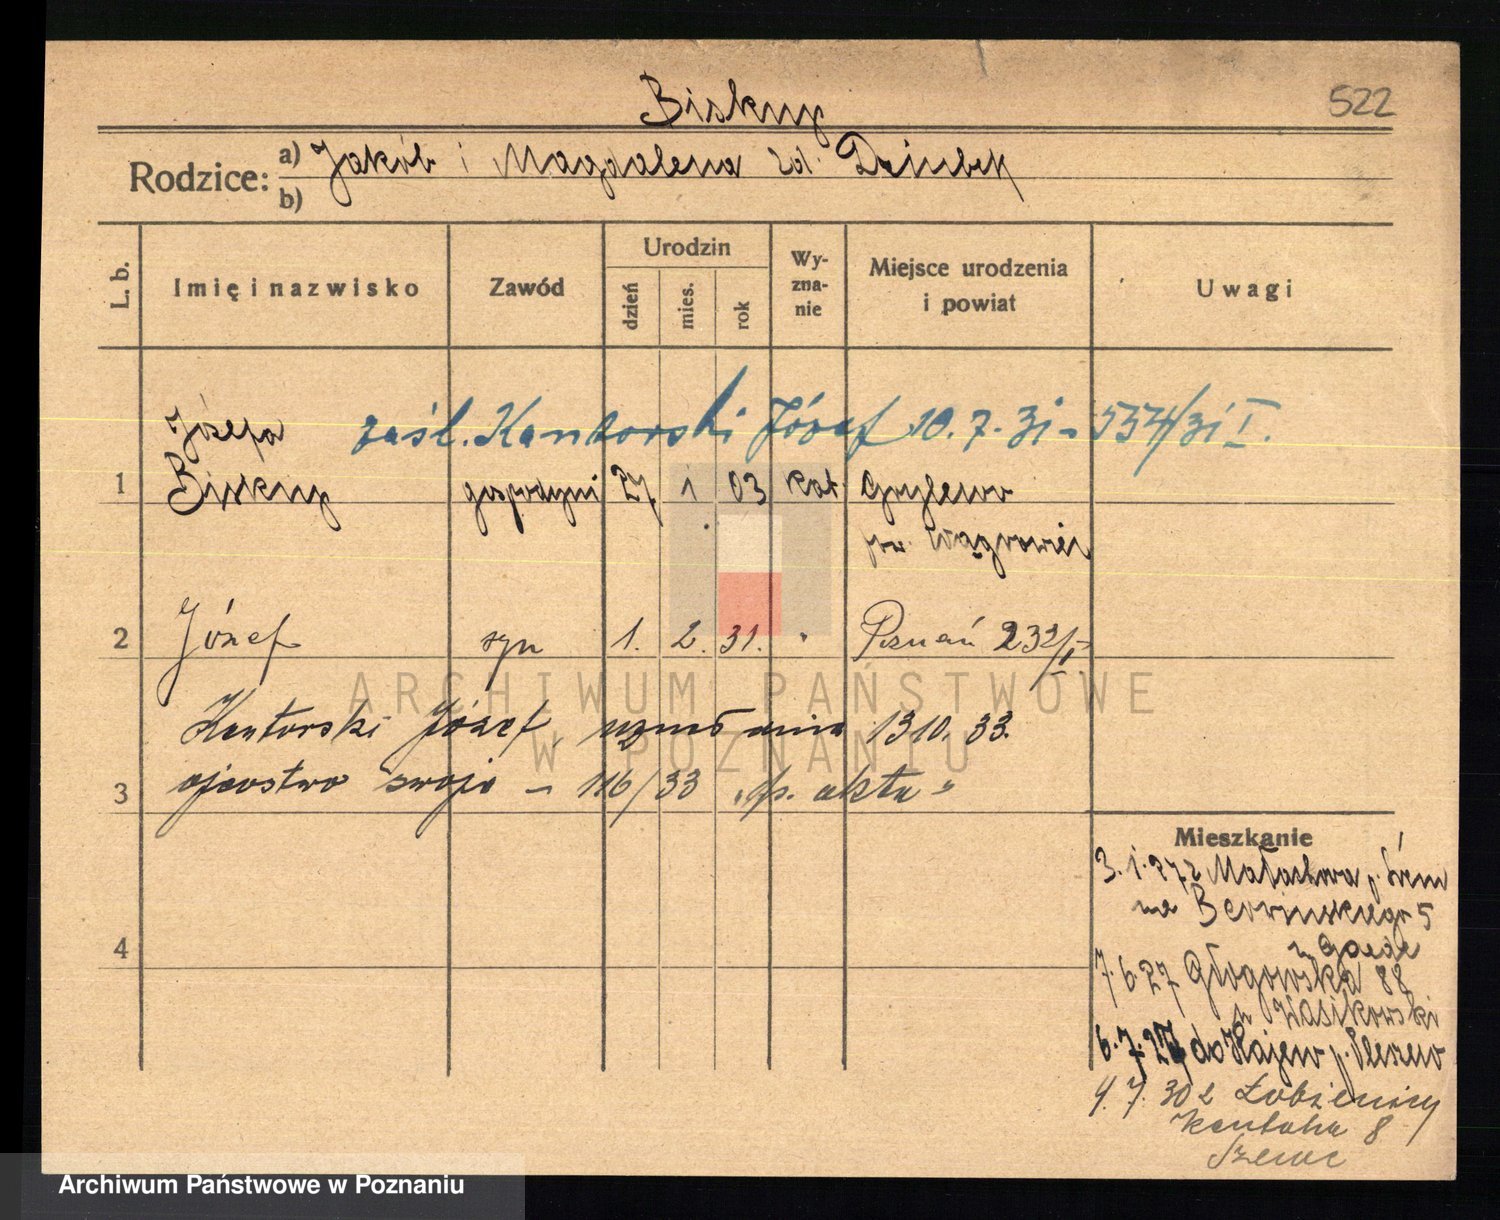 Biskup
522
Rodzice: a) Jakób i Magdalena zd. Dziubek
b)
L. b. Imię i nazwisko Zawód Urodzin dzień mies. rok Wy-zna-nie Miejsce urodzenia i powiat Uwagi
Józefa zaśl. Kantorski Józef 10.7.31 - 554/31 I.
1 Biskup gospodyni 27 1 03 kat. Grylewo
pow. Wągrowiec
2 Józef syn 1. 2. 31. " Poznań 232/I
Kantorski Józef uznał dnia 13 10. 33.
3 ojcostwo swoje - 116/33 "p. akta"
Mieszkanie
3.1.27 z p. Śrem
na Berwińskiego 5
4
7.6.27 Głogowska 88
u Wasikowski
6.7.27 do Kajew p. Pleszew
4.7.30 z Łobżenicy
Kantaka 8
ARCHIWUM PAŃSTWOWE
W POZNANIU
Archiwum Państwowe w Poznaniu